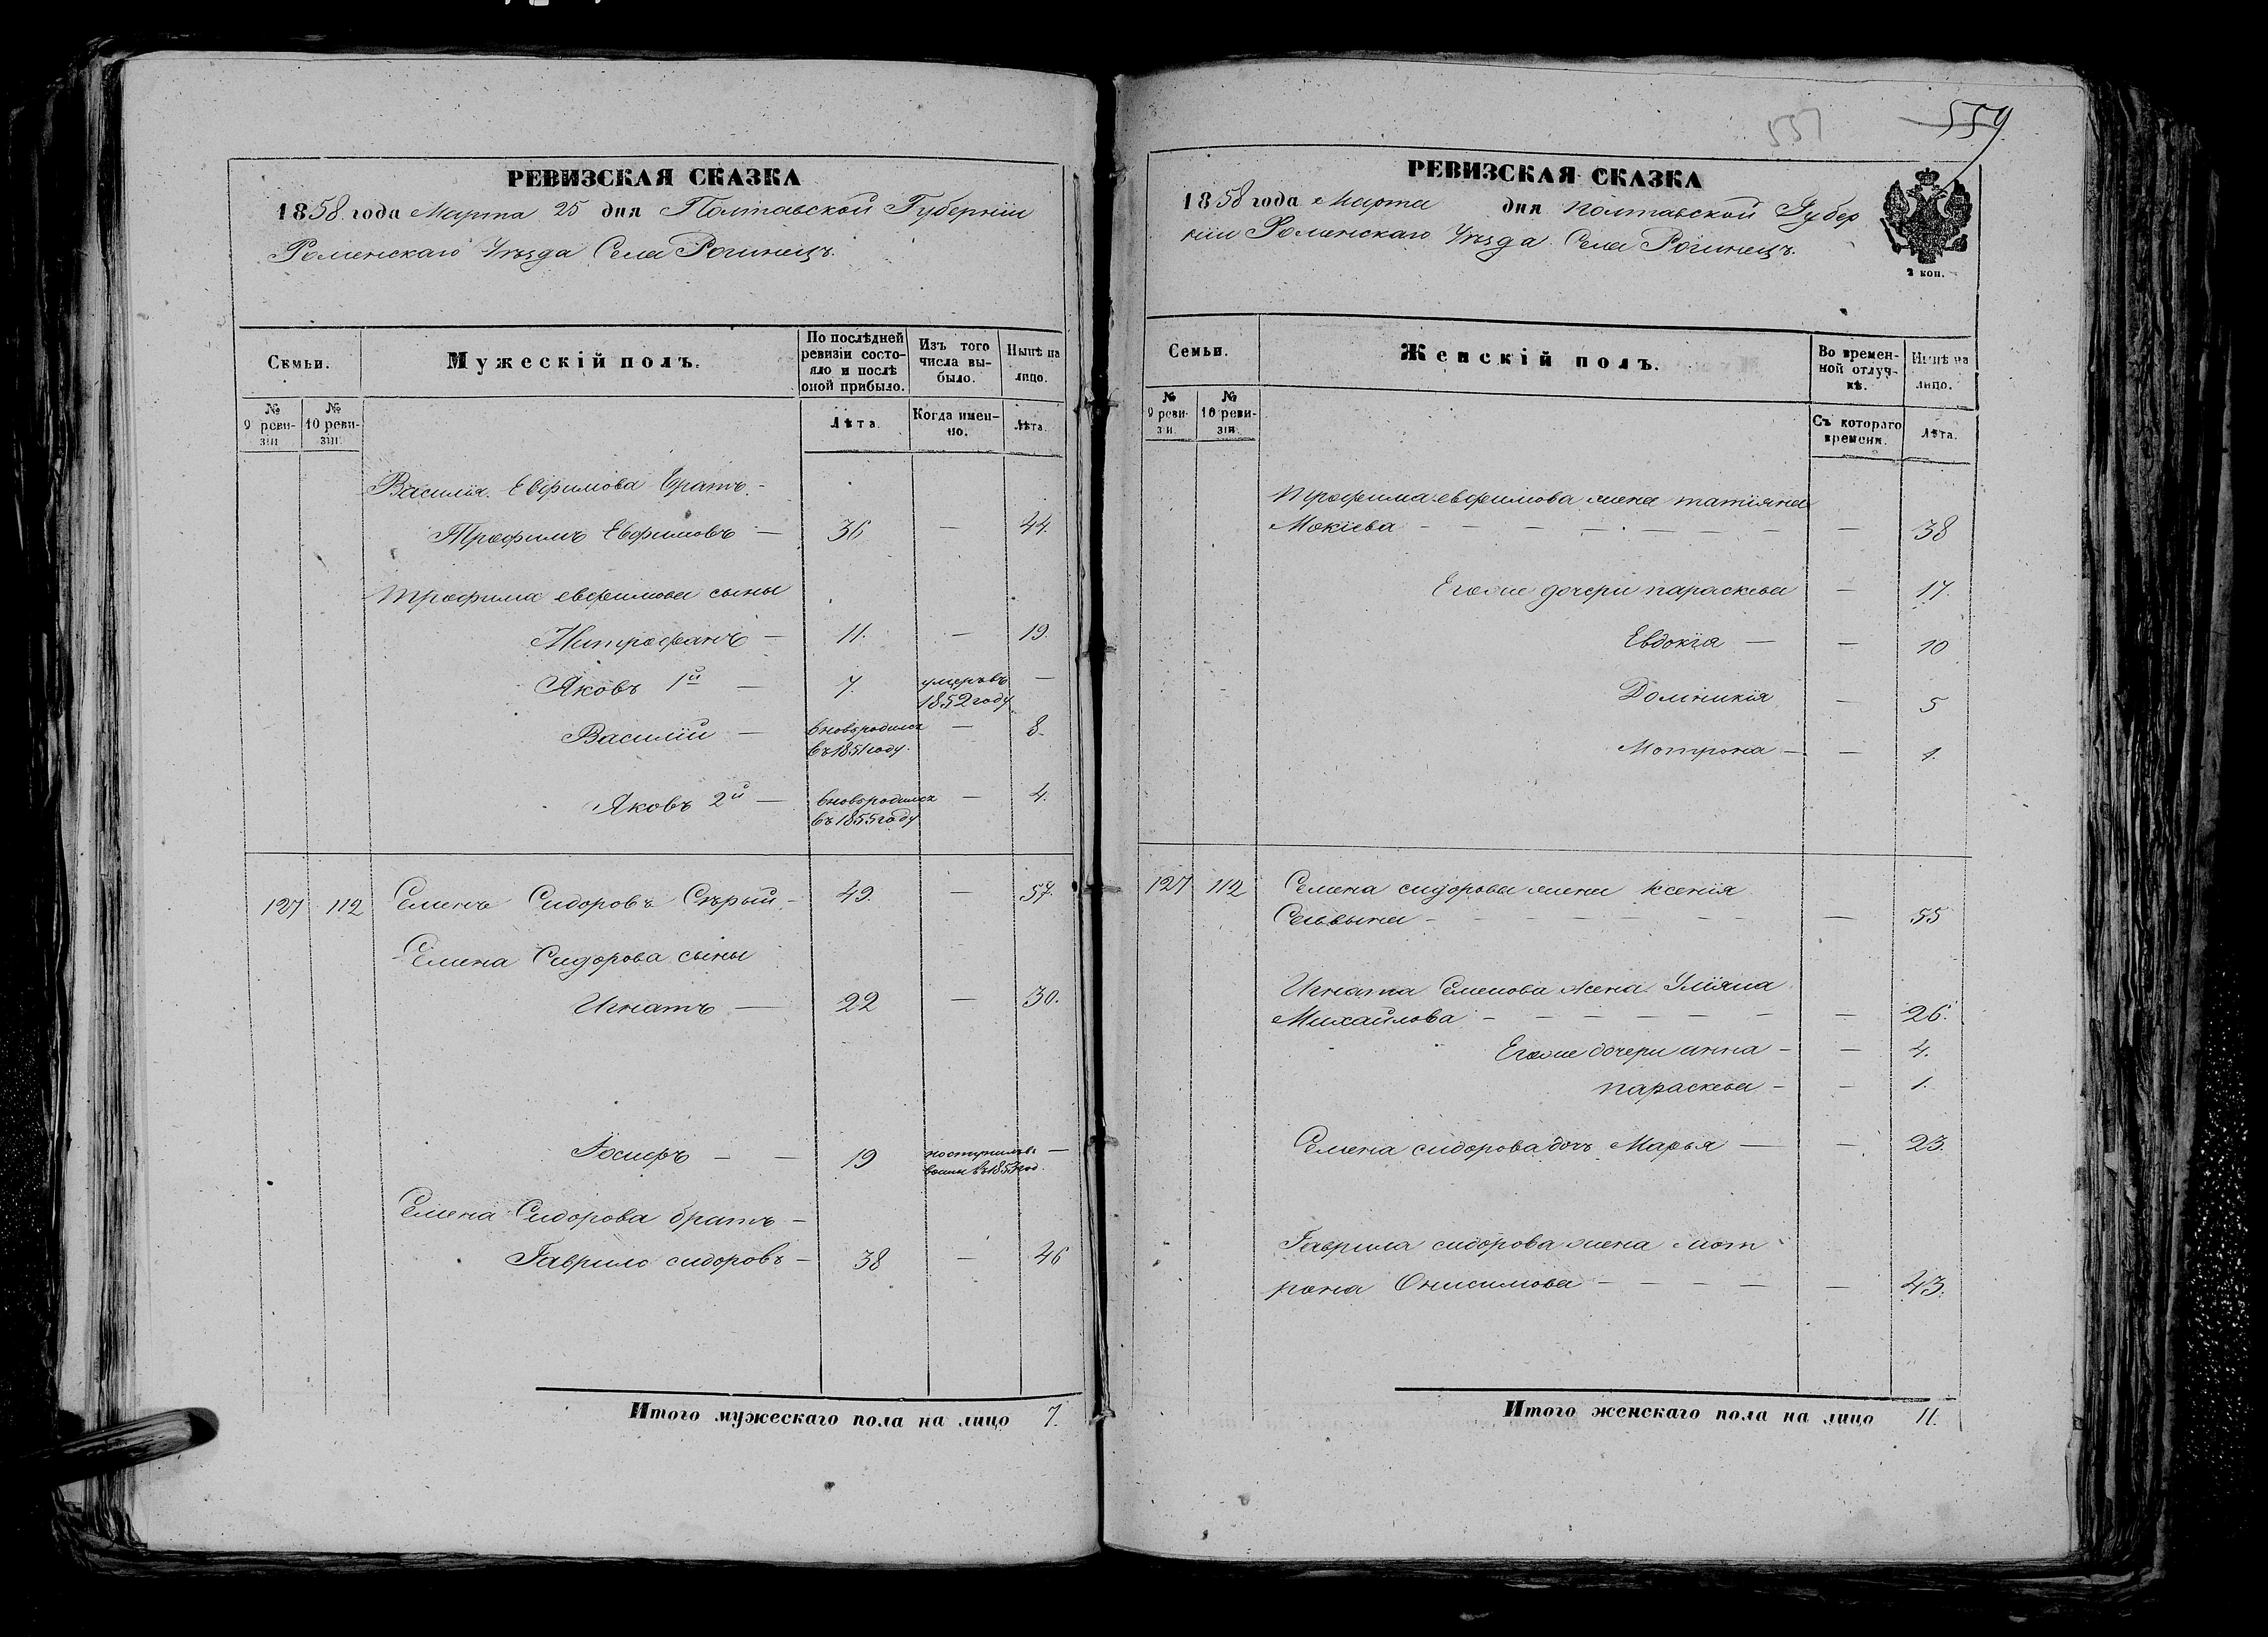 РЕВИЗСКАЯ СКАЗКА
1858 года Марта 25 дня Полтавской Губерніи
Роменскаго Уѣзда Села Рогинецъ.
Семьи.
Мужескій полъ.
По послѣдней ревизіи состояло и послѣ оной прибыло.
Изъ того числа выбыло.
Нынѣ на лицо.
№ 9 ревизіи
№ 10 ревизіи
Лѣта.
Когда именно.
Лѣта.
Василія Евфимова братъ –
Трофимъ Евфимовъ — 36 — 44.
Трофима евфимова сыны
Митрофанъ — 11. — 19.
Яковъ 1й — 7. умеръ въ 1852 году —
Василій — вновь родился въ 1851 году. — 8.
Яковъ 2й — вновь родился въ 1855 году — 4.
127 112 Семенъ Сидоровъ Сѣрый – 49. — 57.
Семена Сидорова сыны
Игнатъ — 22 — 30.
Іосифъ — — 19 въ 1853 год. —
Семена Сидорова братъ –
Гаврило сидоровъ – 38 — 46
Итого мужескаго пола на лицо 7.
557
559
РЕВИЗСКАЯ СКАЗКА
1858 года Марта дня полтавской Губер
ніи Роменскаго Уѣзда Села Рогинецъ.
2 коп.
Семьи.
Женскій полъ.
Во временной отлучкѣ.
Нынѣ на лицо.
№ 9 ревизіи.
№ 10 ревизіи.
Съ котораго времени.
Лѣта.
Трофима евфимова жена татіяна
Мокіева — — 38
Егоже дочери параскева — 17.
Евдокія — — 10
Домникія — 5
Мотрона — — 1.
127 112 Семена сидорова жена Ксенія
— — 55
Игната Семенова жена Уліяна
Михайлова — — 26.
Егоже дочери анна – — 4.
параскева – — 1.
Семена сидорова дочь Марья — — 23.
Гаврила сидорова жена мот
рона Онисимова — — 43.
Итого женскаго пола на лицо 11.